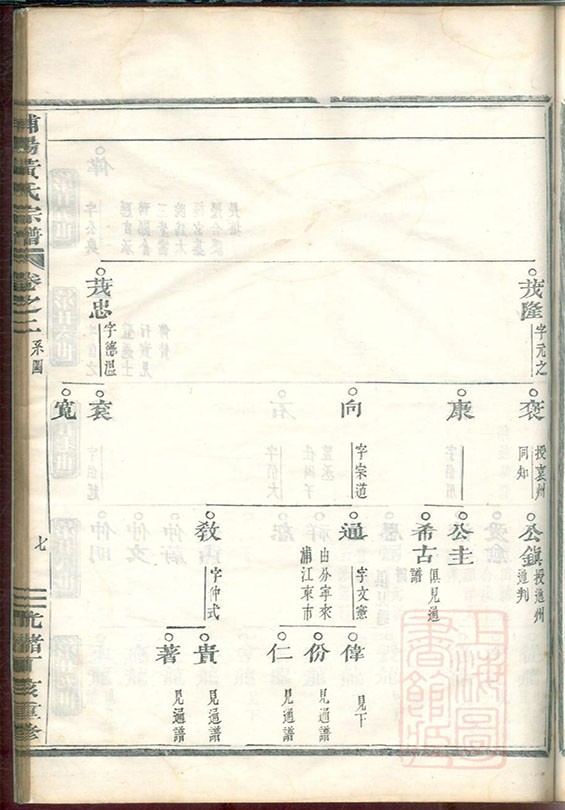 茂隆
字元之
茂忠
字德溫
袞
授袁州
同知
康
向
字宗道
袞
寬
公鎮
授通州
通判
公圭
希古
俱見通
譜
通
字文憲
由分寧來
浦江東市
教
字仲式
偉
見下
份
見通譜
仁
見通譜
貴
見通譜
著
見通譜
浦陽黃氏宗譜
卷之二
系圖
七
光緒丁亥重修
上海圖
書館藏